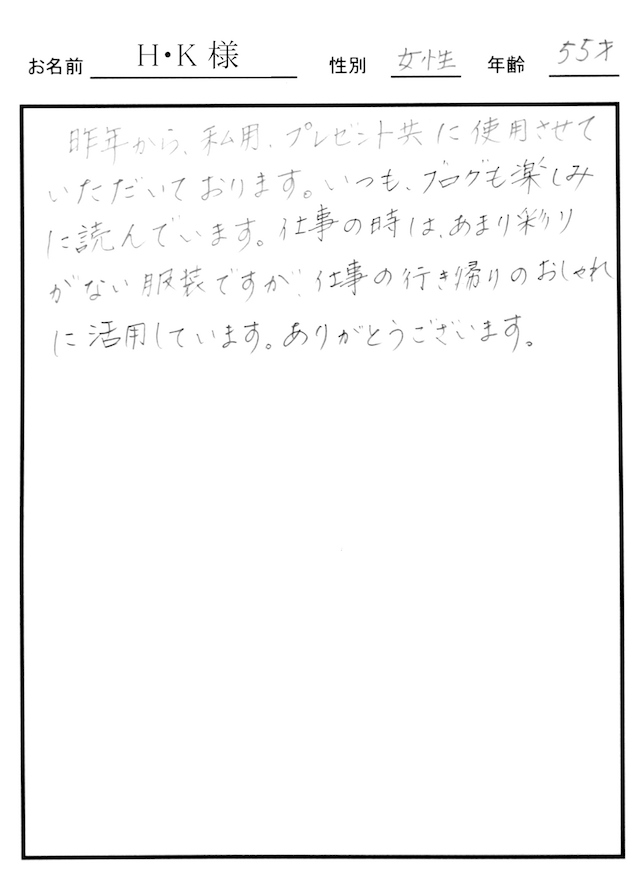 お名前 H・K 様 性別 女性 年齢 55才
昨年から、私用、プレゼント共に使用させて
いただいております。いつも、ブログも楽しみ
に読んでいます。仕事の時は、あまり彩り
がない服装ですが、仕事の行き帰りのおしゃれ
に活用しています。ありがとうございます。